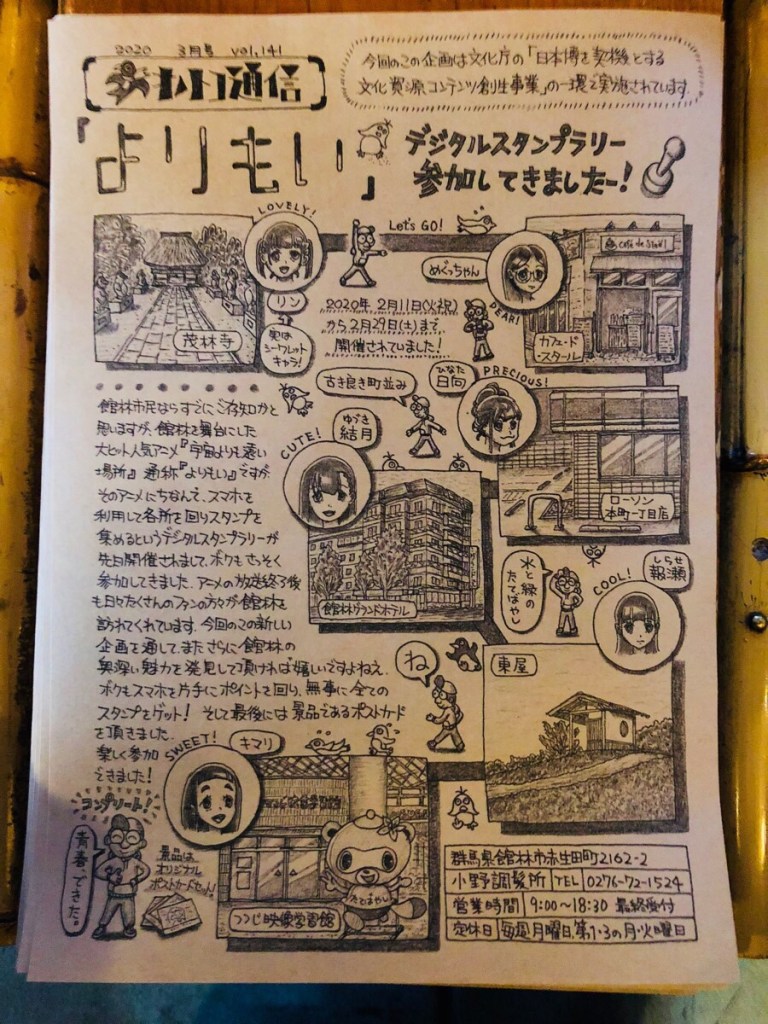 2020 3月号 vol.141
通信
今回のこの企画は文化庁の「日本博を契機とする
文化資源コンテンツ創生事業」の一環で実施されています。
『よりもい』
デジタルスタンプラリー
参加してきましたー!
LOVELY!
Let's GO!
リン
実は
シークレット
キャラ!
茂林寺
めぐっちゃん
DEAR!
café de Stall
カフェ・ド
・スタール
2020年2月11日(火・祝)
から2月29日(土)まで
開催されていました!
古き良き町並み
ひなた
日向
PRECIOUS!
ローソン
本町一丁目店
CUTE!
ゆづき
結月
館林グランドホテル
館林市民ならすでにご存知かと
思いますが、館林を舞台にした
大ヒット人気アニメ『宇宙よりも遠い
場所』通称『よりもい』ですが、
そのアニメにちなんで、スマホを
利用して各所を回りスタンプを
集めるというデジタルスタンプラリーが
先日開催されまして、ボクもさっそく
参加してきました。アニメの放送終了後
も日々たくさんのファンの方々が館林を
訪れてくれています。今回のこの新しい
企画を通して、またさらに館林の
奥深い魅力を発見して頂ければ嬉しいですよねえ。
ボクもスマホを片手にポイントを回り、無事に全ての
スタンプをゲット! そして最後には景品であるポストカード
を頂きました。
楽しく参加
できました!
水と緑の
たてばやし
しらせ
報瀬
COOL!
ね
東屋
SWEET!
キマリ
たてばやし
つつじ映像学習館
コンプリート!
青春、できた。
景品は
オリジナル
ポストカードセット!
群馬県館林市赤生田町2162-2
小野調髪所 TEL 0276-72-1524
営業時間 9:00〜18:30 最終受付
定休日 毎週月曜日、第1・3の月・火曜日